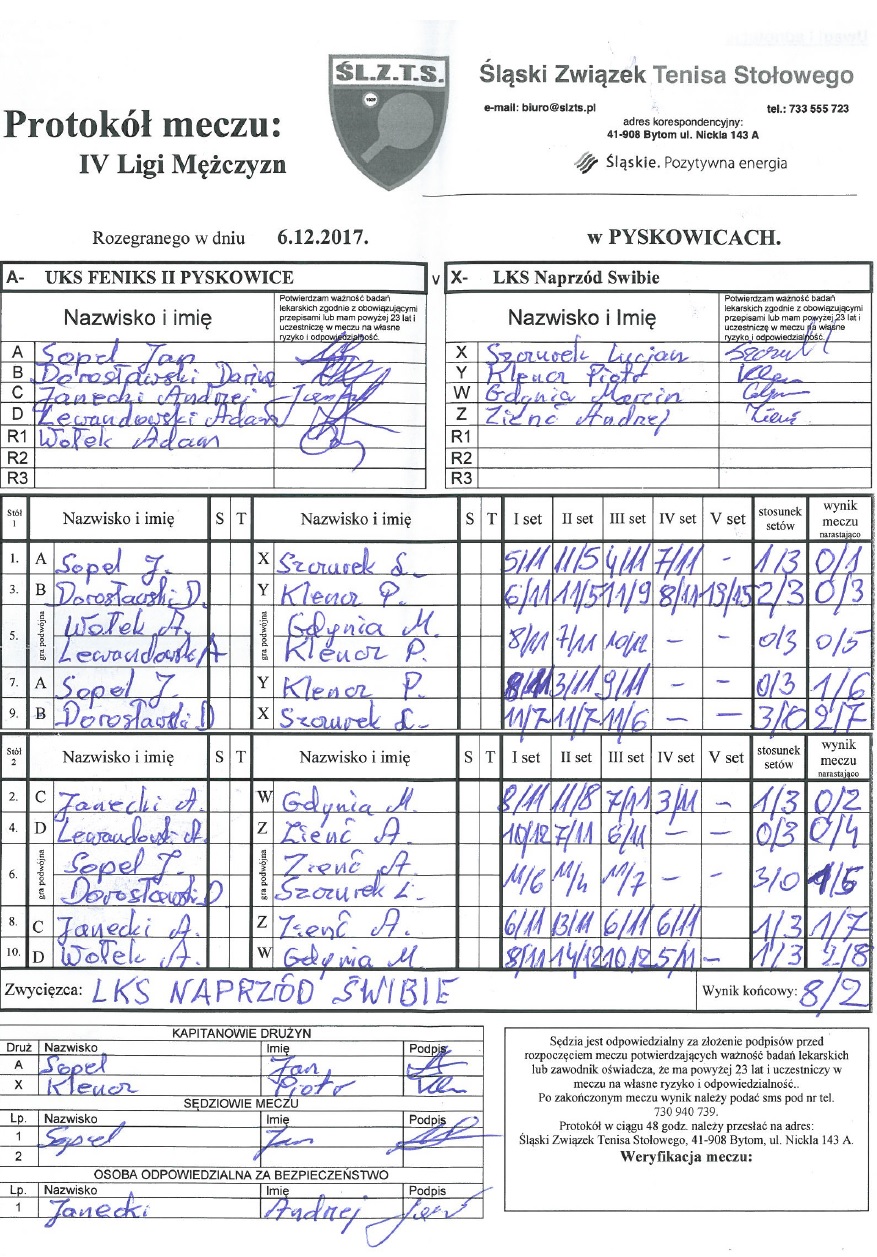 ŚL.Z.T.S.
Śląski Związek Tenisa Stołowego
e-mail: biuro@slzts.pl tel.: 733 555 723
adres korespondencyjny:
41-908 Bytom ul. Nickla 143 A
Śląskie. Pozytywna energia
Protokół meczu:
IV Ligi Mężczyzn
Rozegranego w dniu 6.12.2017. w PYSKOWICACH.
A- UKS FENIKS II PYSKOWICE v X- LKS Naprzód Swibie
Nazwisko i imię
Potwierdzam ważność badań
lekarskich zgodnie z obowiązującymi
przepisami lub mam powyżej 23 lat i
uczestniczę w meczu na własne
ryzyko i odpowiedzialność.
Nazwisko i Imię
Potwierdzam ważność badań
lekarskich zgodnie z obowiązującymi
przepisami lub mam powyżej 23 lat i
uczestniczę w meczu na własne
ryzyko i odpowiedzialność.
A Sopel Jan
B Dorosławski Dariusz
C Janecki Andrzej
D Lewandowski Adam
R1 Wołek Adam
R2
R3
X Szczurek Lucjan
Y Klencz Piotr
W Gdynia Marcin
Z Zienć Andrzej
R1
R2
R3
Stół 1 Nazwisko i imię S T Nazwisko i imię S T I set II set III set IV set V set stosunek setów wynik meczu narastająco
1. A Sopel J. X Szczurek L. 5/11 11/5 4/11 7/11 - 1/3 0/1
3. B Dorosławski D. Y Klencz P. 6/11 11/5 11/9 8/11 13/15 2/3 0/3
5. gra podwójna Wołek A. gra podwójna Gdynia M. 8/11 7/11 10/12 - - 0/3 0/5
Lewandowsk A Klencz P.
7. A Sopel J. Y Klencz P. 8/11 3/11 9/11 - - 0/3 1/6
9. B Dorosławski D X Szczurek L. 11/7 11/7 11/6 - - 3/0 2/7
Stół 2 Nazwisko i imię S T Nazwisko i imię S T I set II set III set IV set V set stosunek setów wynik meczu narastająco
2. C Janecki A. W Gdynia M. 8/11 11/8 7/11 3/11 - 1/3 0/2
4. D Lewandowski A. Z Zienć A. 10/12 7/11 6/11 - - 0/3 0/4
6. gra podwójna Sopel J. gra podwójna Zienć A. 11/6 11/4 11/7 - - 3/0 1/5
Dorosławski D Szczurek L.
8. C Janecki A. Z Zienć A. 6/11 13/11 6/11 6/11 1/3 1/7
10. D Wołek A. W Gdynia M 8/11 14/12 10/12 5/11 - 1/3 2/8
Zwycięzca: LKS NAPRZÓD ŚWIBIE Wynik końcowy: 8/2
KAPITANOWIE DRUŻYN
Druż Nazwisko Imię Podpis
A Sopel Jan
X Klencz Piotr
SĘDZIOWIE MECZU
Lp. Nazwisko Imię Podpis
1 Sopel Jan
2
OSOBA ODPOWIEDZIALNA ZA BEZPIECZEŃSTWO
Lp. Nazwisko Imię Podpis
1 Janecki Andrzej
Sędzia jest odpowiedzialny za złożenie podpisów przed
rozpoczęciem meczu potwierdzających ważność badań lekarskich
lub zawodnik oświadcza, że ma powyżej 23 lat i uczestniczy w
meczu na własne ryzyko i odpowiedzialność..
Po zakończonym meczu wynik należy podać sms pod nr tel.
730 940 739.
Protokół w ciągu 48 godz. należy przesłać na adres:
Śląski Związek Tenisa Stołowego, 41-908 Bytom, ul. Nickla 143 A.
Weryfikacja meczu: